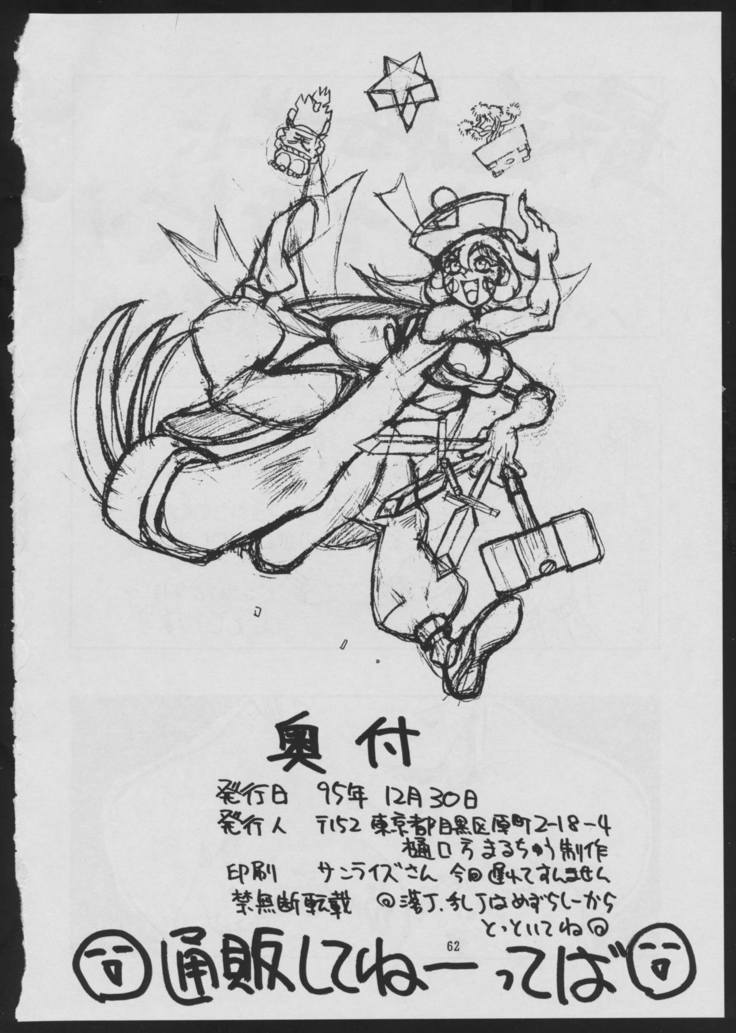 奥付
発行日 95年 12月 30日
発行人 〒152 東京都目黒区原町2-18-4
樋口方 まるちゅう制作
印刷 サンライズさん 今回遅れてすんません
禁無断転載 @落丁、乱丁はめずらしーから
とっといてね@
62
通販してねーってば